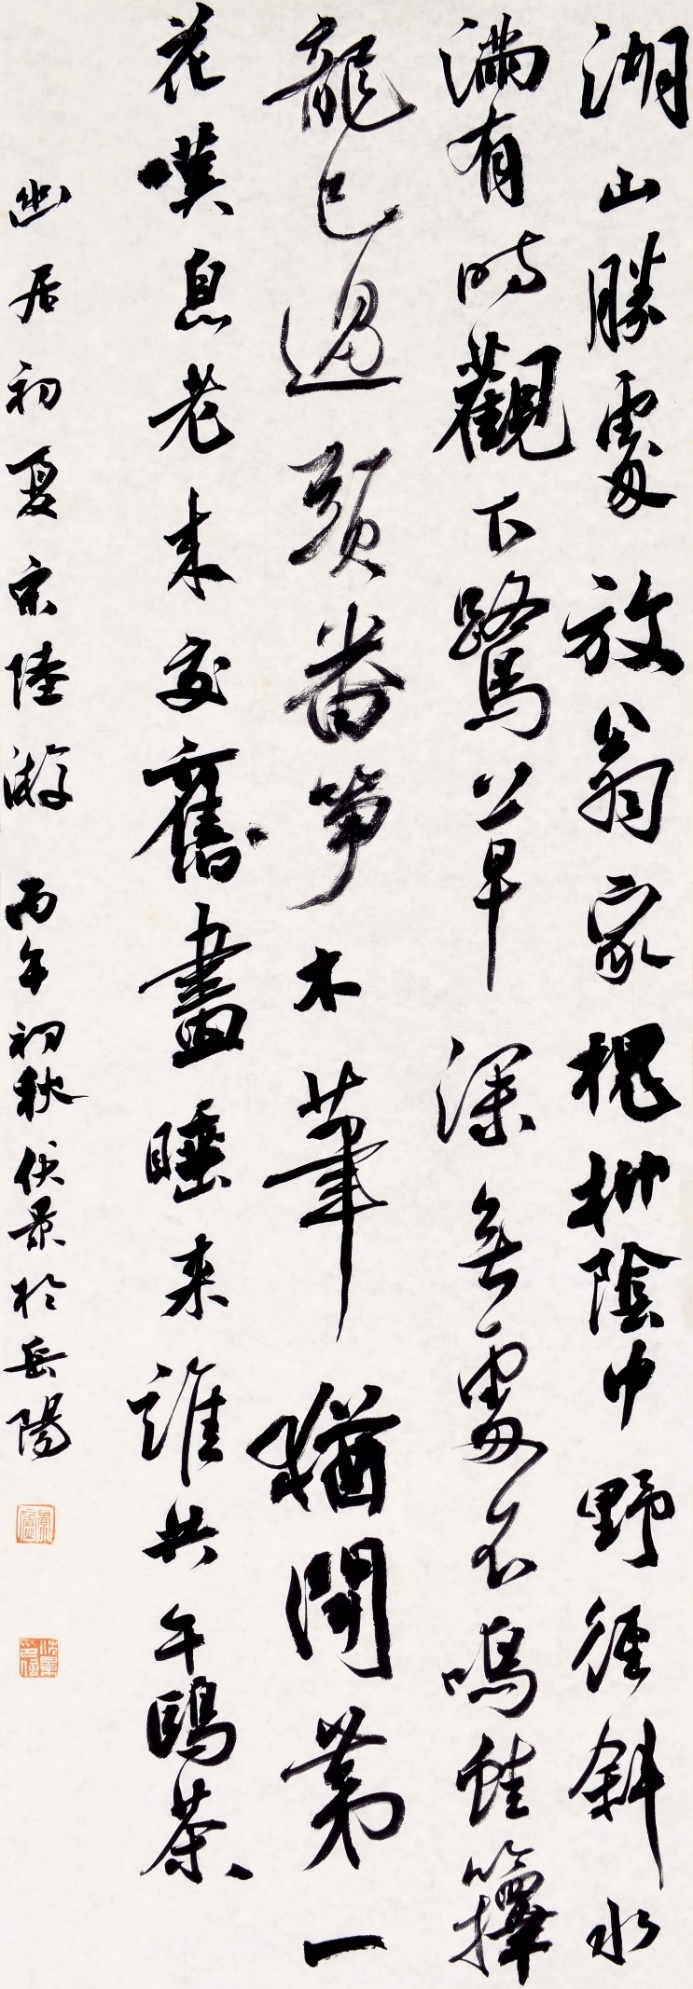 湖山勝處放翁家槐柳陰中野徑斜水
滿有時觀下鷺草深無處不鳴蛙籜
龍已過頭番笋木筆猶開第一
花嘆息老來交舊盡睡來誰共午鷗茶
幽居初夏宋陸游 丙午初秋伏景於岳陽